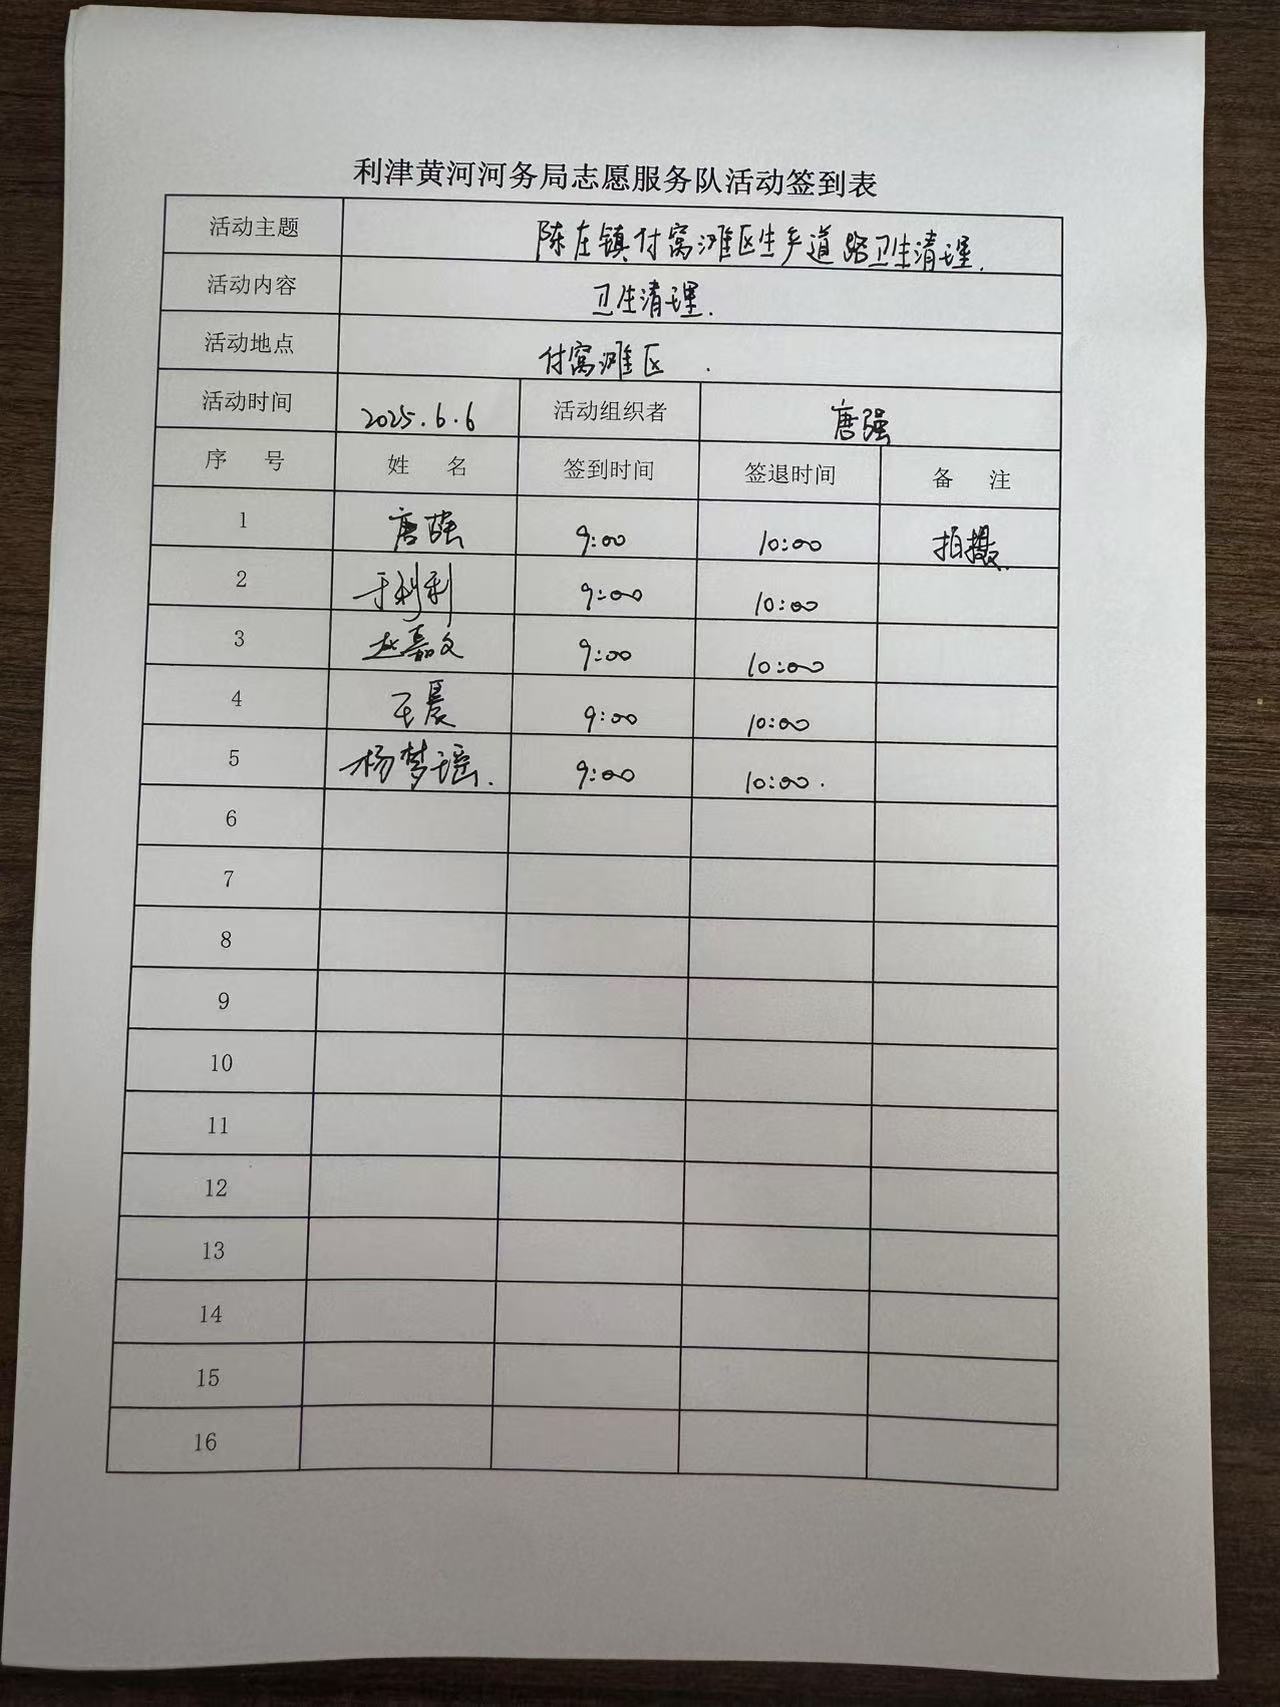 利津黄河河务局志愿服务队活动签到表
活动主题 陈庄镇付窝滩区生产道路卫生清理.
活动内容 卫生清理.
活动地点 付窝滩区.
活动时间 2025.6.6 活动组织者 唐强
序 号 姓 名 签到时间 签退时间 备 注
1 唐强 9:00 10:00 拍摄.
2 于利利 9:00 10:00
3 赵嘉文 9:00 10:00
4 王晨 9:00 10:00
5 杨梦瑶. 9:00 10:00.
6
7
8
9
10
11
12
13
14
15
16